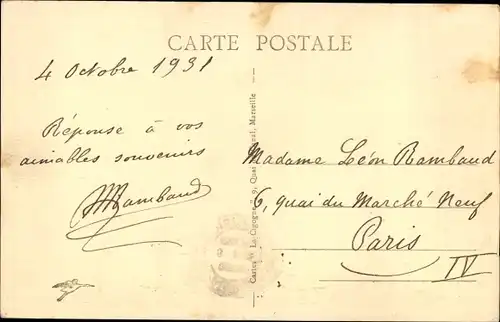 CARTE POSTALE
4 Octobre 1931
Réponse à vos
aimables souvenirs
Rambaud
Cartes "La Cigogne", 9, Quai Marseille
Madame Léon Rambaud
6, quai du Marché Neuf
Paris
IV